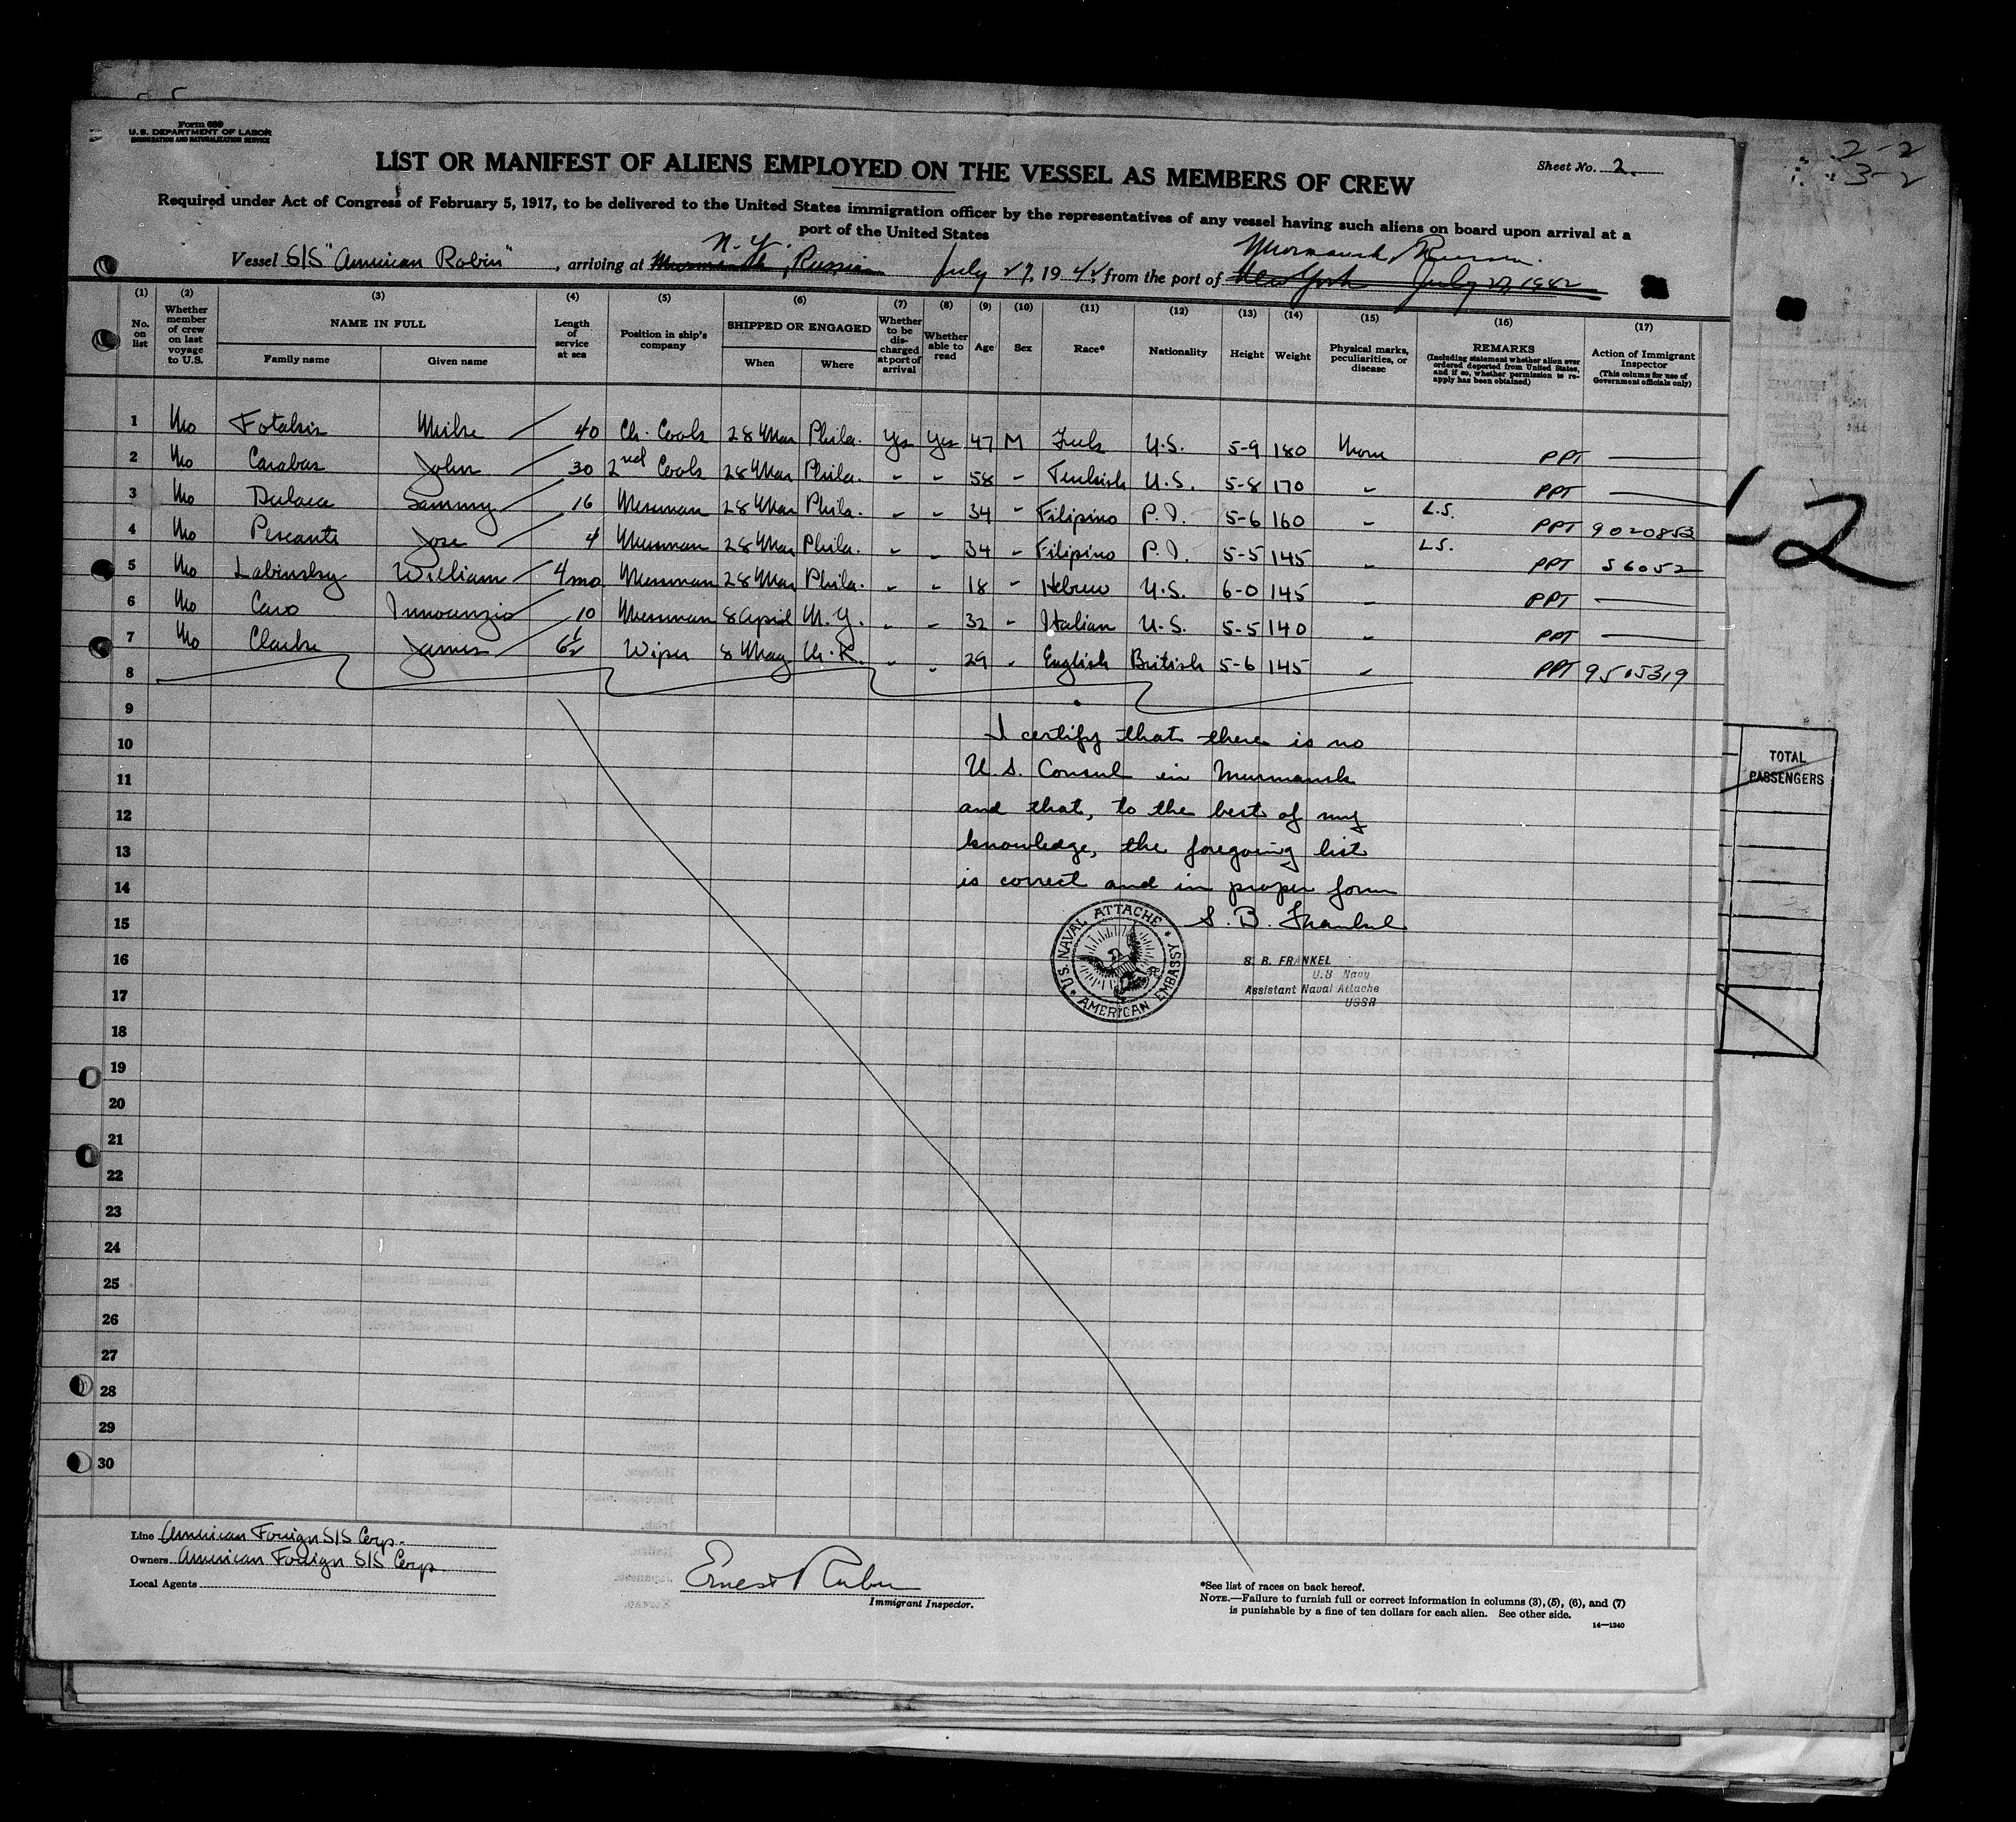 Form 689
U. S. DEPARTMENT OF LABOR
IMMIGRATION AND NATURALIZATION SERVICE
LIST OR MANIFEST OF ALIENS EMPLOYED ON THE VESSEL AS MEMBERS OF CREW
Sheet No. 2.
2-2
3-2
Required under Act of Congress of February 5, 1917, to be delivered to the United States immigration officer by the representatives of any vessel having such aliens on board upon arrival at a
port of the United States
N. Y. Murmansk, Russia.
Vessel S/S "American Robin", arriving at Murmansk, Russia July 27, 1942, from the port of New York July 27, 1942
(1) (2) (3) (4) (5) (6) (7) (8) (9) (10) (11) (12) (13) (14) (15) (16) (17)
No. on list
Whether member of crew on last voyage to U.S.
NAME IN FULL
Family name
Given name
Length of service at sea
Position in ship's company
SHIPPED OR ENGAGED
When
Where
Whether to be discharged at port of arrival
Whether able to read
Age
Sex
Race*
Nationality
Height
Weight
Physical marks, peculiarities, or disease
REMARKS
(Including statement whether alien ever ordered deported from United States, and if so, whether permission to reapply has been obtained)
Action of Immigrant Inspector
(This column for use of Government officials only)
1 No Mike 40 Ch. Cook 28 Mar Phila. Yes Yes 47 M U.S. 5-9 180 None PPT —
2 No Carabas John 30 2nd Cook 28 Mar Phila. " " 58 " Turkish U.S. 5-8 170 " PPT —
3 No Sammy 16 Messman 28 Mar Phila. " " 34 " Filipino P.I. 5-6 160 " L.S. PPT 9020853
4 No Pescante Jose 4 Messman 28 Mar Phila. " " 34 " Filipino P.I. 5-5 145 " L.S. PPT 56052
5 No Labinsky William 4mo Messman 28 Mar Phila. " " 18 " Hebrew U.S. 6-0 145 " PPT —
6 No Caro Innocenzio 10 Messman 8 April N.Y. " " 32 " Italian U.S. 5-5 140 " PPT —
7 No Clarke James 6½ Wiper 8 May " " 29 " English British 5-6 145 " PPT 9505319
8
9
10
11
12
13
14
15
16
17
18
19
20
21
22
23
24
25
26
27
28
29
30
I certify that there is no
U. S. Consul in Murmansk
and that, to the best of my
knowledge, the foregoing list
is correct and in proper form
S. B. Frankel
U.S. NAVAL ATTACHE * AMERICAN EMBASSY *
S. B. FRANKEL
U.S Navy
Assistant Naval Attache
USSR
TOTAL
PASSENGERS
Line American Foreign S/S Corp.
Owners American Foreign S/S Corp
Local Agents
Ernest Rubin
Immigrant Inspector.
*See list of races on back hereof.
NOTE.—Failure to furnish full or correct information in columns (3), (5), (6), and (7)
is punishable by a fine of ten dollars for each alien. See other side.
14—1240